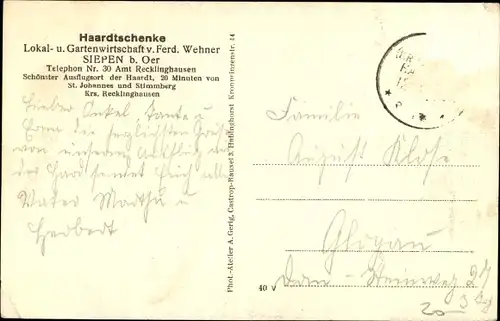 Haardtschenke
Lokal- u. Gartenwirtschaft v. Ferd. Wehner
SIEPEN b. Oer
Telephon Nr. 30 Amt Recklinghausen
Schönster Ausflugsort der Haardt, 20 Minuten von
St. Johannes und Stimmberg
Krs. Recklinghausen
Lieber Onkel, Tante u
Erna die herzlichsten Grüße
von unserem Ausflug in
der Haard sendet Euch alle
Vater Martha u
Herbert
Phot.-Atelier A. Gerig, Castrop-Rauxel 3 - Habinghorst
40 v
Familie
August Klose
Glogau
27